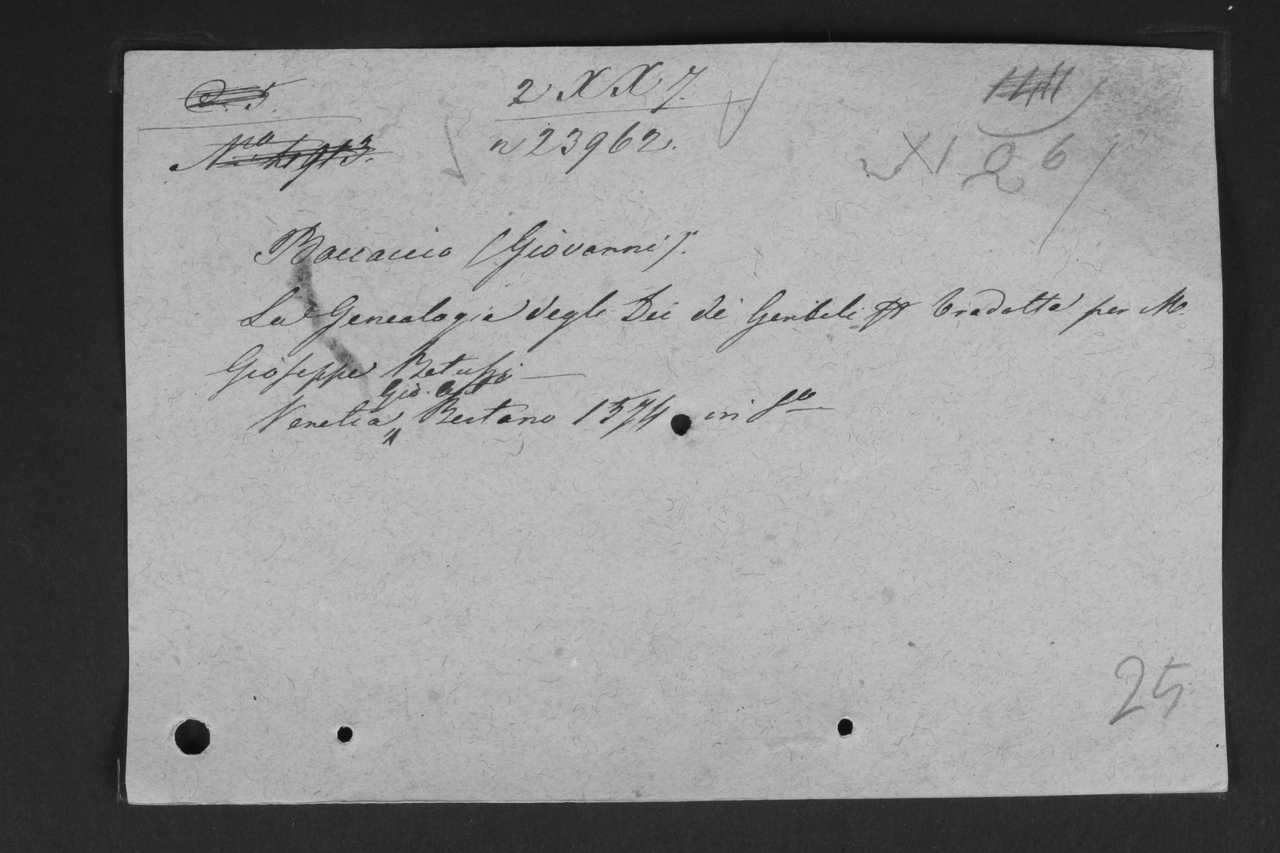 2 X X 7.
n 23962.
XI 2 6
Boccaccio (Giovanni).
La Genealogia degli Dei di Gentili tradotta per M.
Gioseppe Betussi
Gio.
Venetia Bertano 1574 in 8º
25